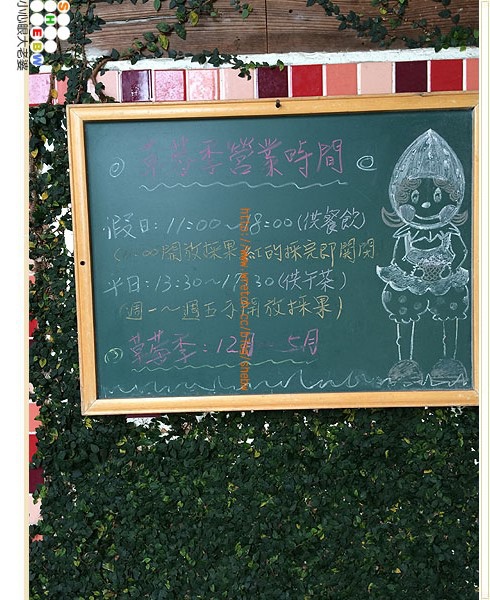 小心眼大老婆
SHEBW
草莓季營業時間
假日:11:00~18:00(供餐飲)
(11:00開放採果 紅的採完即關閉
平日:13:30~17:30(供午茶)
(週一~週五不開放採果)
草莓季:12月~5月